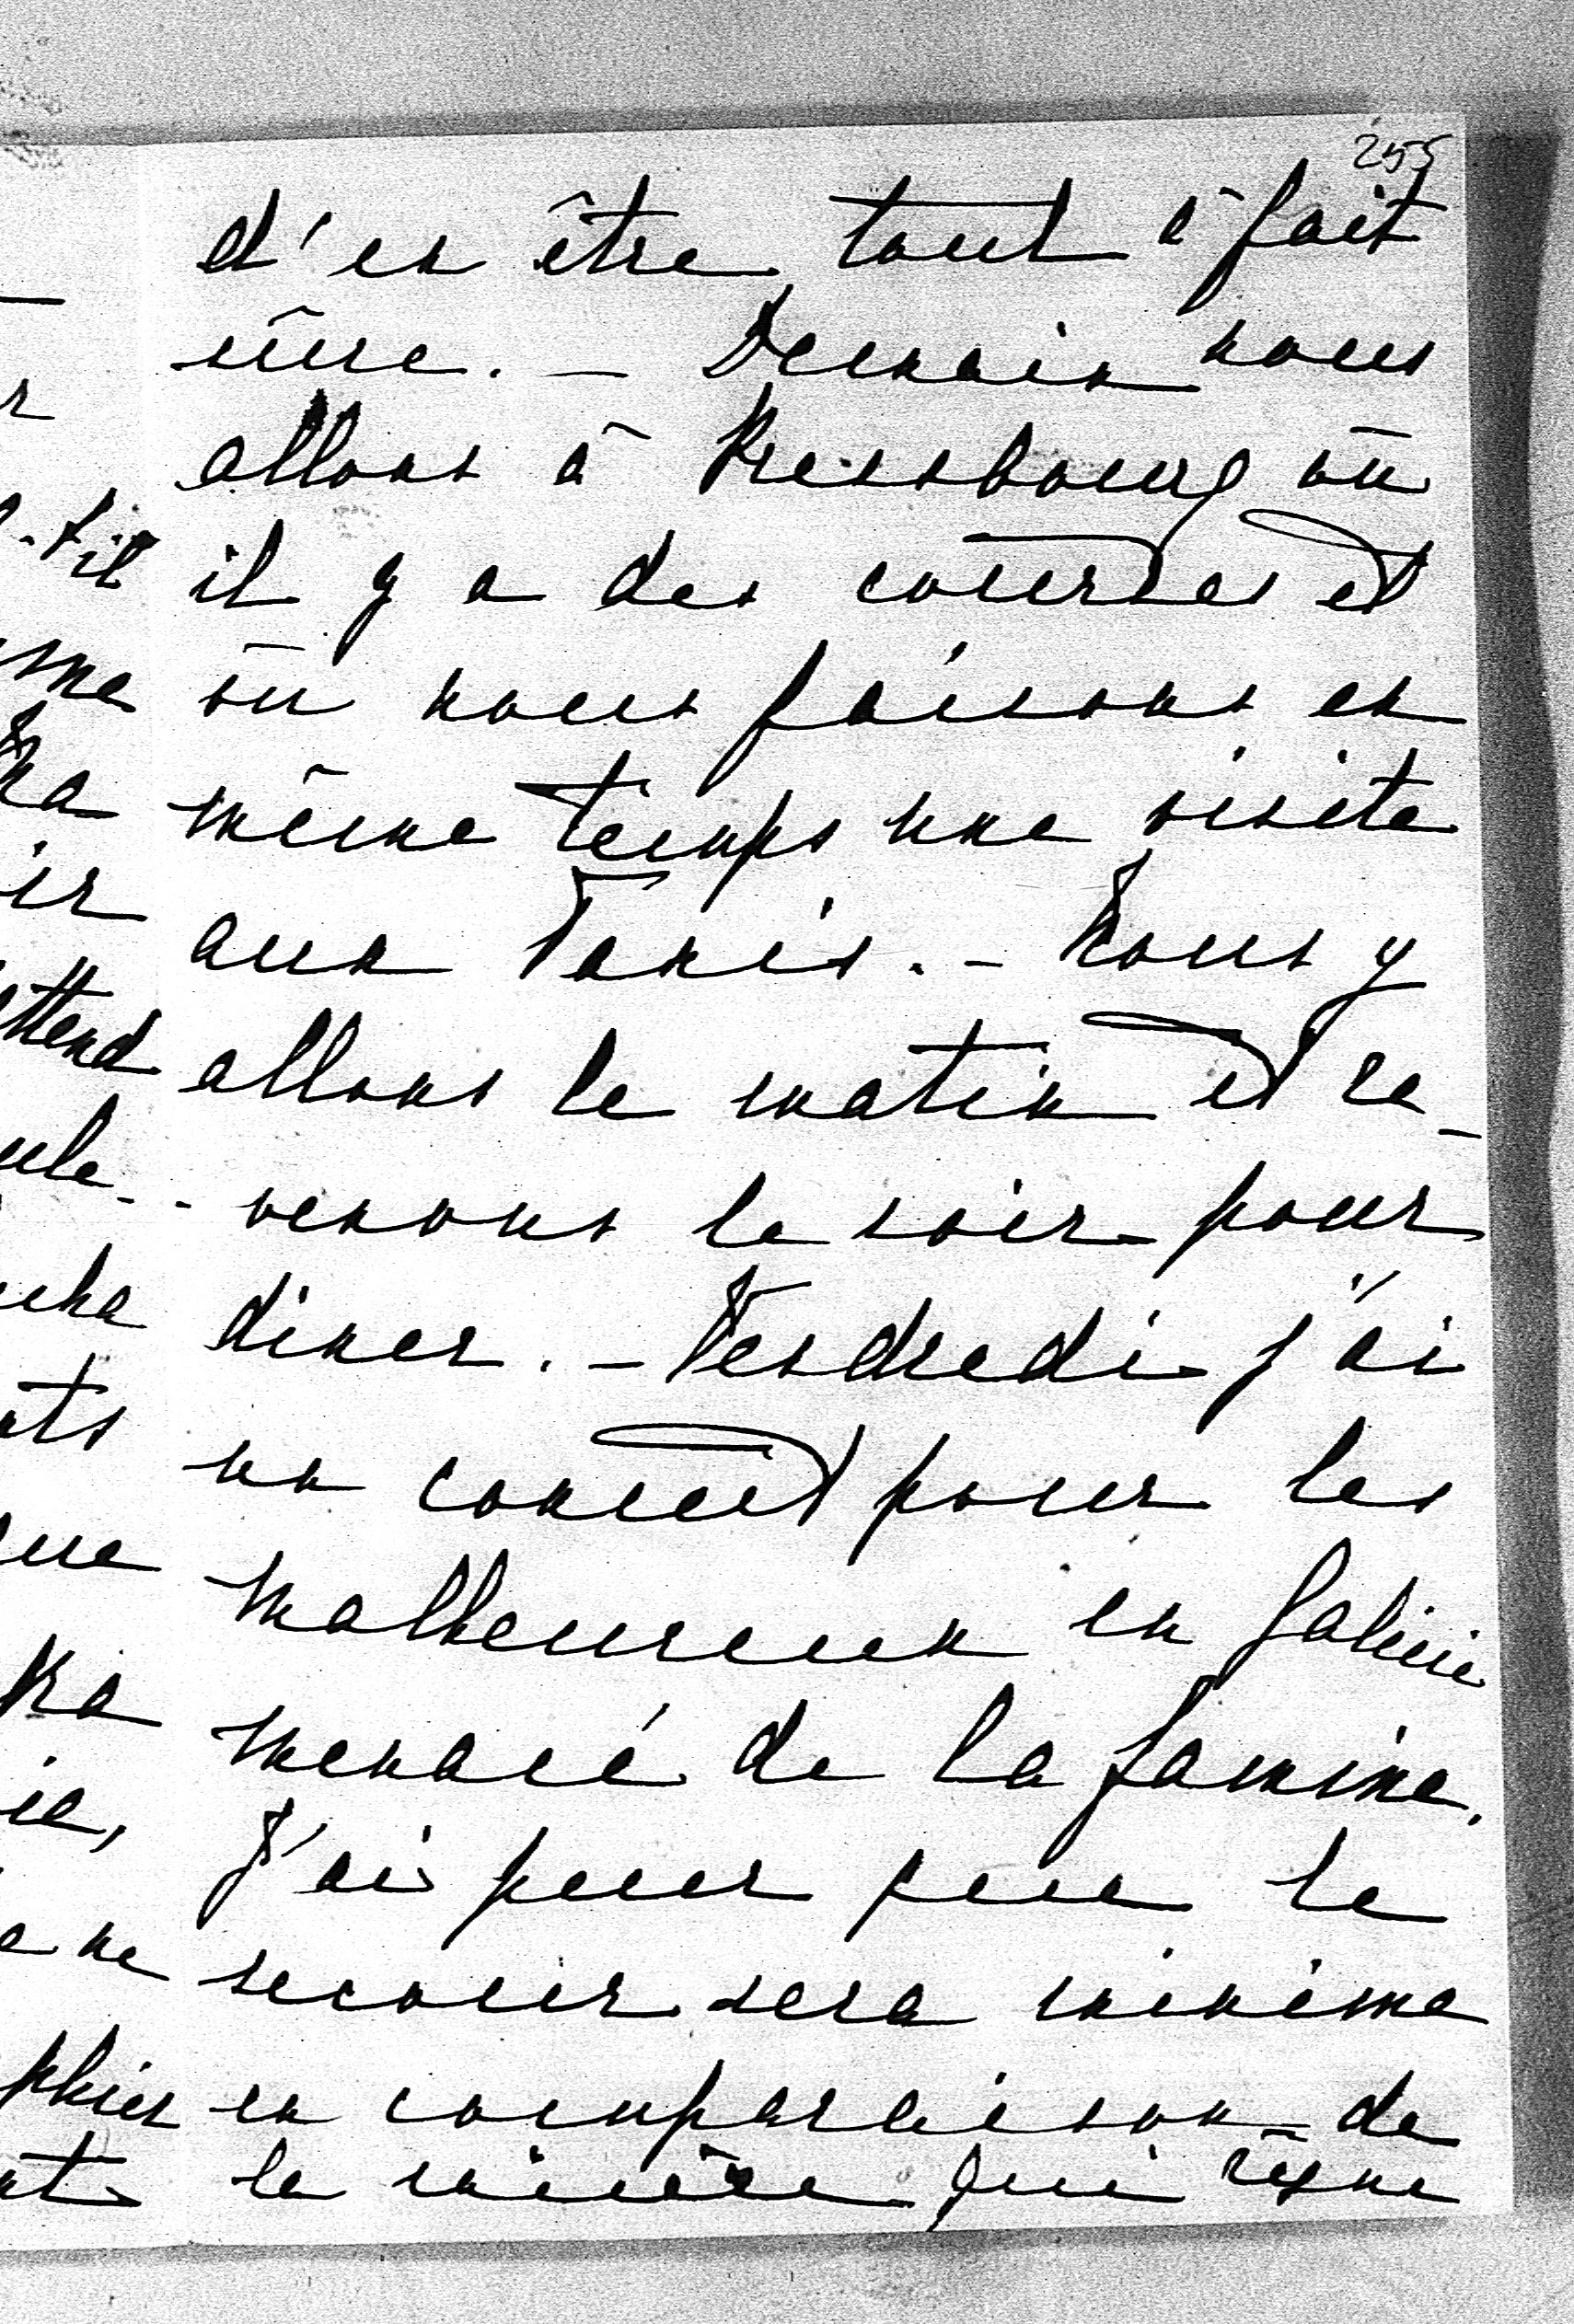 255
d'en être tout à fait
sûre. — Demain nous
allons à Pressbourg où
il y a des courses et
où nous faisons en
même temps une visite
aux Taxis. — Nous y
allons le matin et re-
venons le soir pour
diner. — Vendredi j'ai
un concert pour les
malheureux en Galicie
menacé de la famine.
J'ai peur que le
secours sera minime
en comparaison de
la misère qui règne